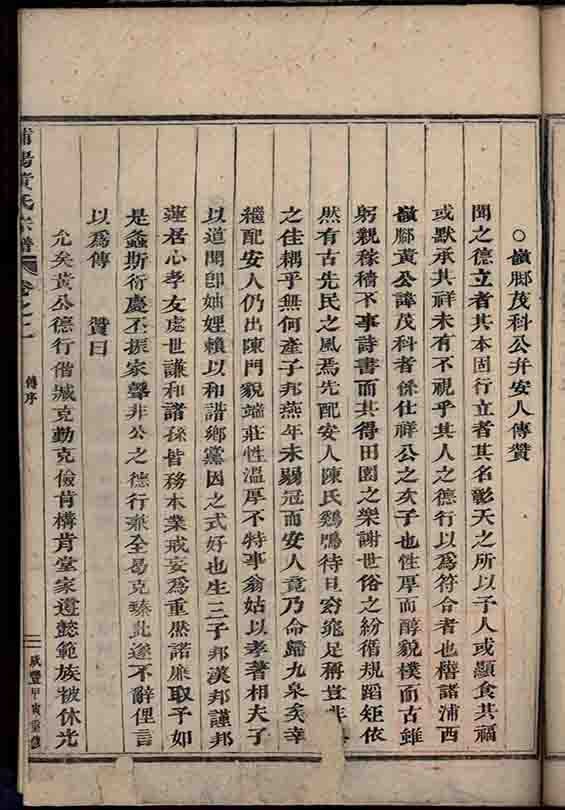 ○嶽腳茂科公幷安人傳贊
聞之德立者其本固行立者其名彰天之所以子人或顯食其福
或默承其祥未有不視乎其人之德行以爲符合者也稽諸浦西
嶽腳黃公諱茂科者係仕祥公之次子也性厚而醇貌樸而古雖
躬親稼穡不事詩書而其得田園之樂謝世俗之紛循規蹈矩依
然有古先民之風焉先配安人陳氏鷄鳴待旦窈窕足稱豈非
之佳耦乎無何產子邦燕年未弱冠而安人竟乃命歸九泉矣幸
繼配安人仍出陳門貌端莊性溫厚不特事翁姑以孝著相夫子
以道聞卽妯娌賴以和諧鄉黨因之式好也生三子邦漢邦謹邦
蓮居心孝友處世謙和諸孫皆務本業戒妄爲重然諾廉取予如
是螽斯衍慶丕振家聲非公之德行兼全曷克臻此遂不辭俚言
以爲傳 贊曰
允矣黃公德行偕臧克勤克儉肯構肯堂家遺懿範族被休光
浦陽黃氏宗譜 卷之二 傳序 咸豐甲寅重修